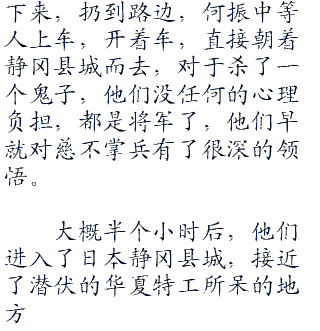 下来，扔到路边，何振中等
人上车，开着车，直接朝着
静冈县城而去，对于杀了一
个鬼子，他们没任何的心理
负担，都是将军了，他们早
就对慈不掌兵有了很深的领
悟。
大概半个小时后，他们
进入了日本静冈县城，接近
了潜伏的华夏特工所呆的地
方